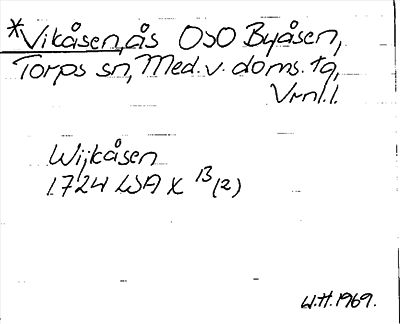 *Vikåsen, ås OSO Byåsen,
Torps sn, Med. v. doms. tg,
Vrnl.l.
Wijkåsen
1724 LSA X 13(2)
W.H. 1969.